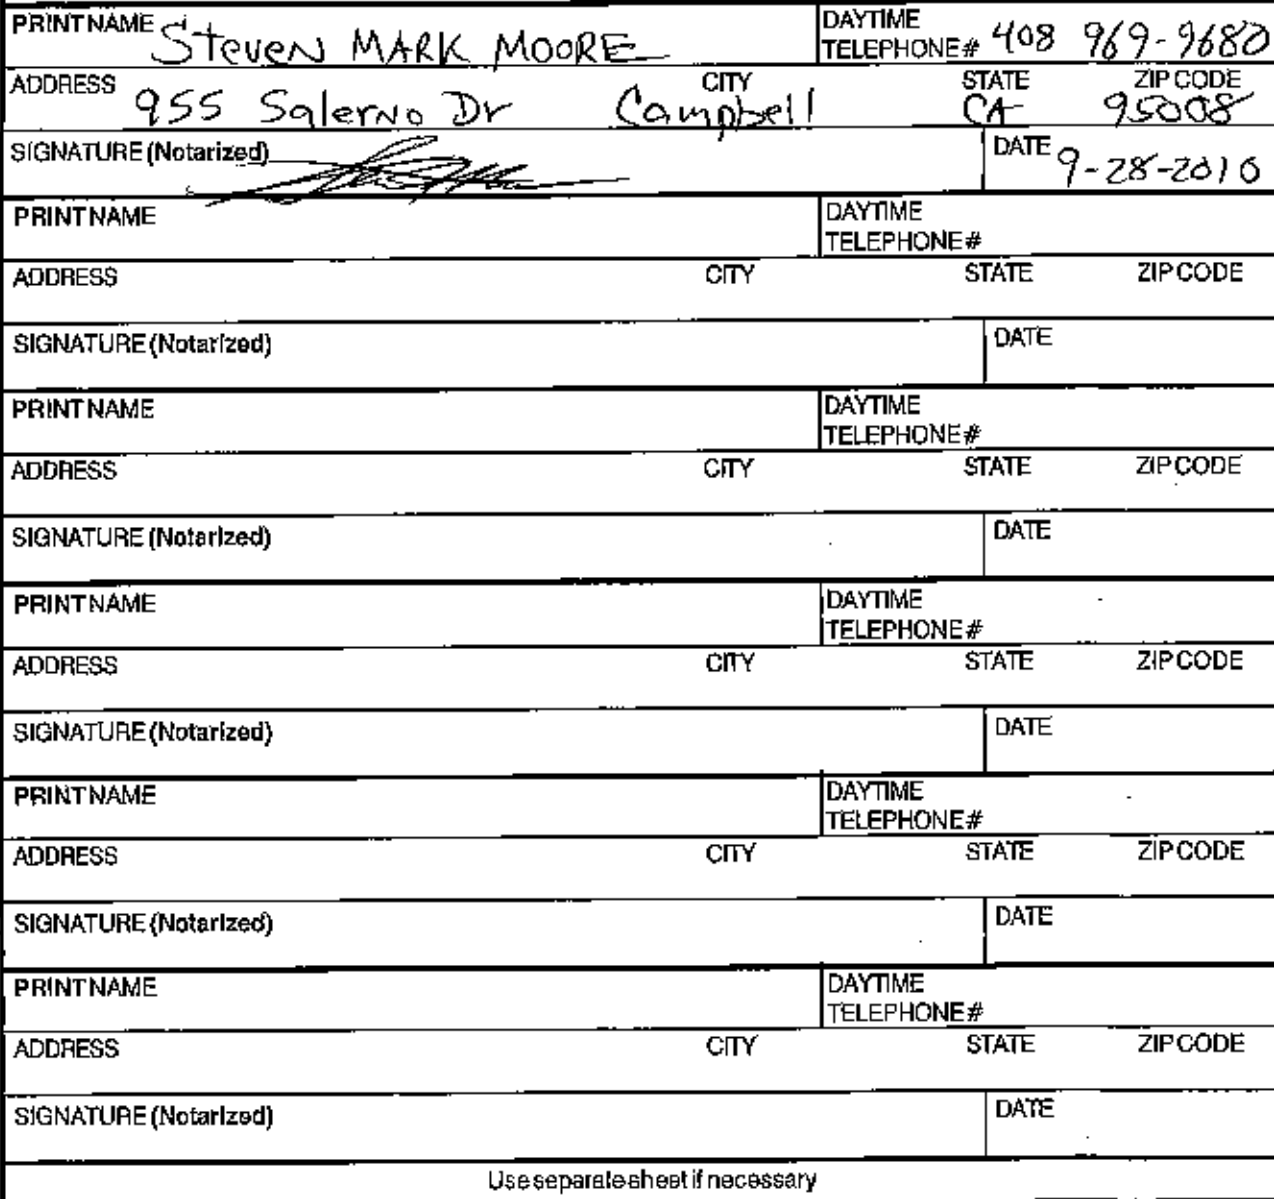 PRINT NAME Steven MARK MOORE DAYTIME TELEPHONE# 408 969-9680
ADDRESS 955 Salerno Dr CITY Campbell STATE CA ZIP CODE 95008
SIGNATURE (Notarized) DATE 9-28-2016
PRINT NAME DAYTIME TELEPHONE#
ADDRESS CITY STATE ZIP CODE
SIGNATURE (Notarized) DATE
PRINT NAME DAYTIME TELEPHONE#
ADDRESS CITY STATE ZIP CODE
SIGNATURE (Notarized) DATE
PRINT NAME DAYTIME TELEPHONE#
ADDRESS CITY STATE ZIP CODE
SIGNATURE (Notarized) DATE
PRINT NAME DAYTIME TELEPHONE#
ADDRESS CITY STATE ZIP CODE
SIGNATURE (Notarized) DATE
PRINT NAME DAYTIME TELEPHONE#
ADDRESS CITY STATE ZIP CODE
SIGNATURE (Notarized) DATE
Use separate sheet if necessary